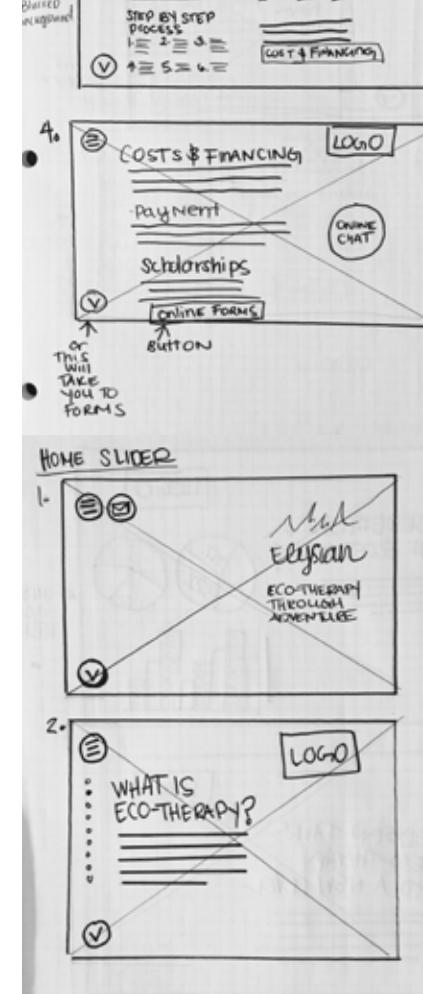 Blurred
background
STEP BY STEP
PROCESS
1. 2. 3.
4. 5. 6.
COST & FINANCING
4.
COSTS & FINANCING
LOGO
Payment
ONLINE
CHAT
Scholarships
ONLINE FORMS
or
THIS
WILL
TAKE
YOU TO
FORMS
BUTTON
HOME SLIDER
1.
Elysian
ECO-THERAPY
THROUGH
ADVENTURE
2.
LOGO
WHAT IS
ECO-THERAPY?